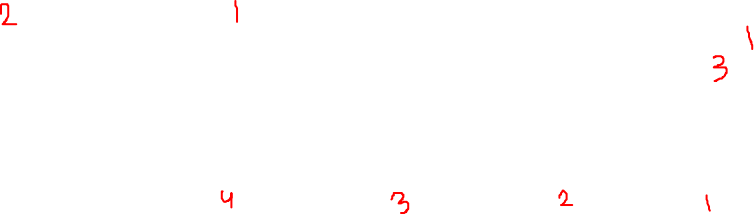 2 1 1
3
4 3 2 1